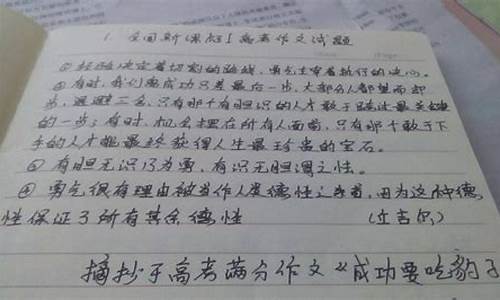 1. 全国新课标I高考作文试题
① 经验决定着切割的路线,勇气主宰着执行的决心。
② 有时,我们离成功只差最后一步,大部分人都望而却
步,退避三舍,只有那个有胆识的人才敢于跳过最关键
的一步;有时,机会摆在所有人面前,只有那个敢于下
手的人才能最终获得人生最珍贵的宝石。
③ 有胆无识乃为勇,有识无胆谓之怯。
④ 勇气很有理由被当作人类德性之首,因为这种德
性保证了所有其余德性 (丘吉尔)
摘抄于高考满分作文《成功要吃豹子